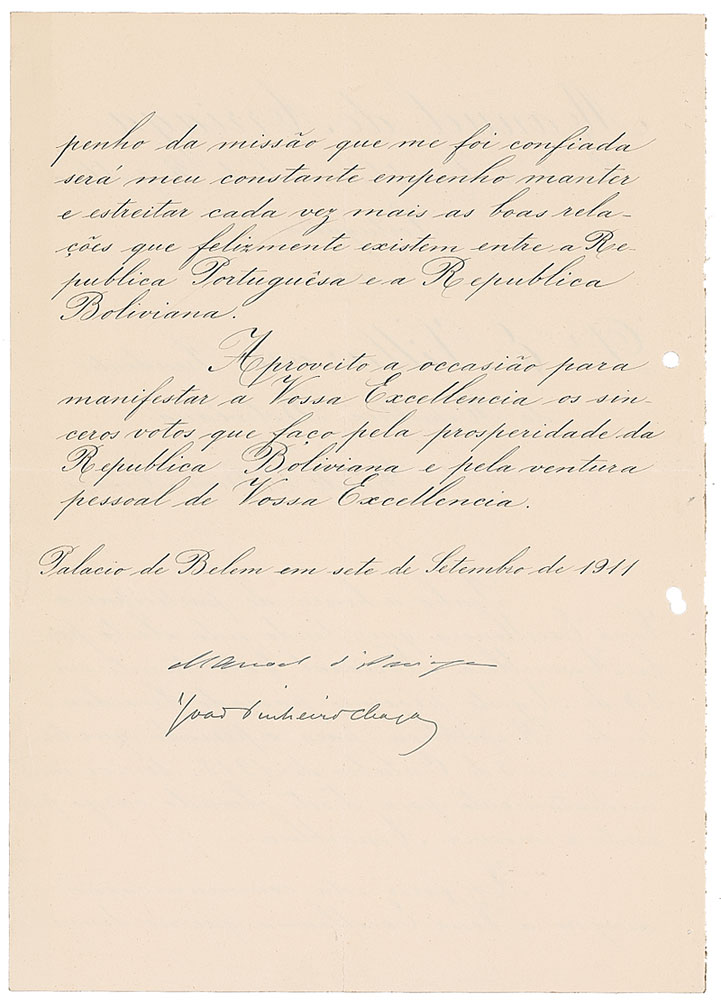 penho da missão que me foi confiada
será meu constante empenho manter
e estreitar cada vez mais as boas rela-
ções que felizmente existem entre a Re-
publica Portuguêsa e a Republica
Boliviana.
Aproveito a occasião para
manifestar a Vossa Excellencia os sin-
ceros votos que faço pela prosperidade da
Republica Boliviana e pela ventura
pessoal de Vossa Excellencia.
Palacio de Belem em sete de Setembro de 1911
Manoel d'Arriaga
João Pinheiro Chagas